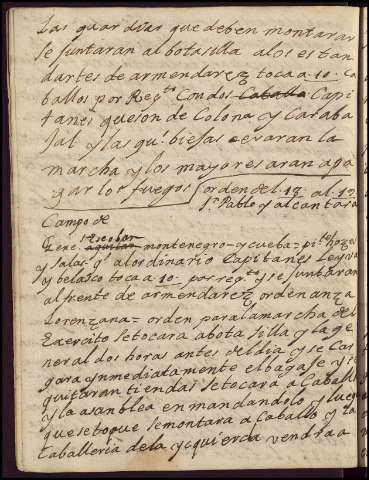 Las guardias que deben montarar
se juntaran al botasilla a los estan
dartes de armendarez toca a 10. Ca
ballos por Reg.to Con dos Caballo Capi
tanes que son de Colona y Caraba
Jal y las gu.s biejas cevaran la
marcha y los mayores aran apa
gar los fuegos orden del 18 al 19
S.n Pablo y alcantara
Campo de
Escobar
Xene. aguilar montenegro y cueba = pi.te hozes
y salas g.l al ordinario Capitanes Leyva
y belasco toca a 10 por reg.to y se juntaran
al frente de armendarez ordenanza
Lorenzana = orden para la marcha del
Exercito se tocara a bota silla y la ge
neral dos horas antes del dia y se Car
gara ynmediatamente el bagaje y se
quitaran tiendas se tocara a Caballo
y la asanblea en mandandolo y lueg
que se toque se montara a Caballo y la
Caballeria de la yzquierda vendra a